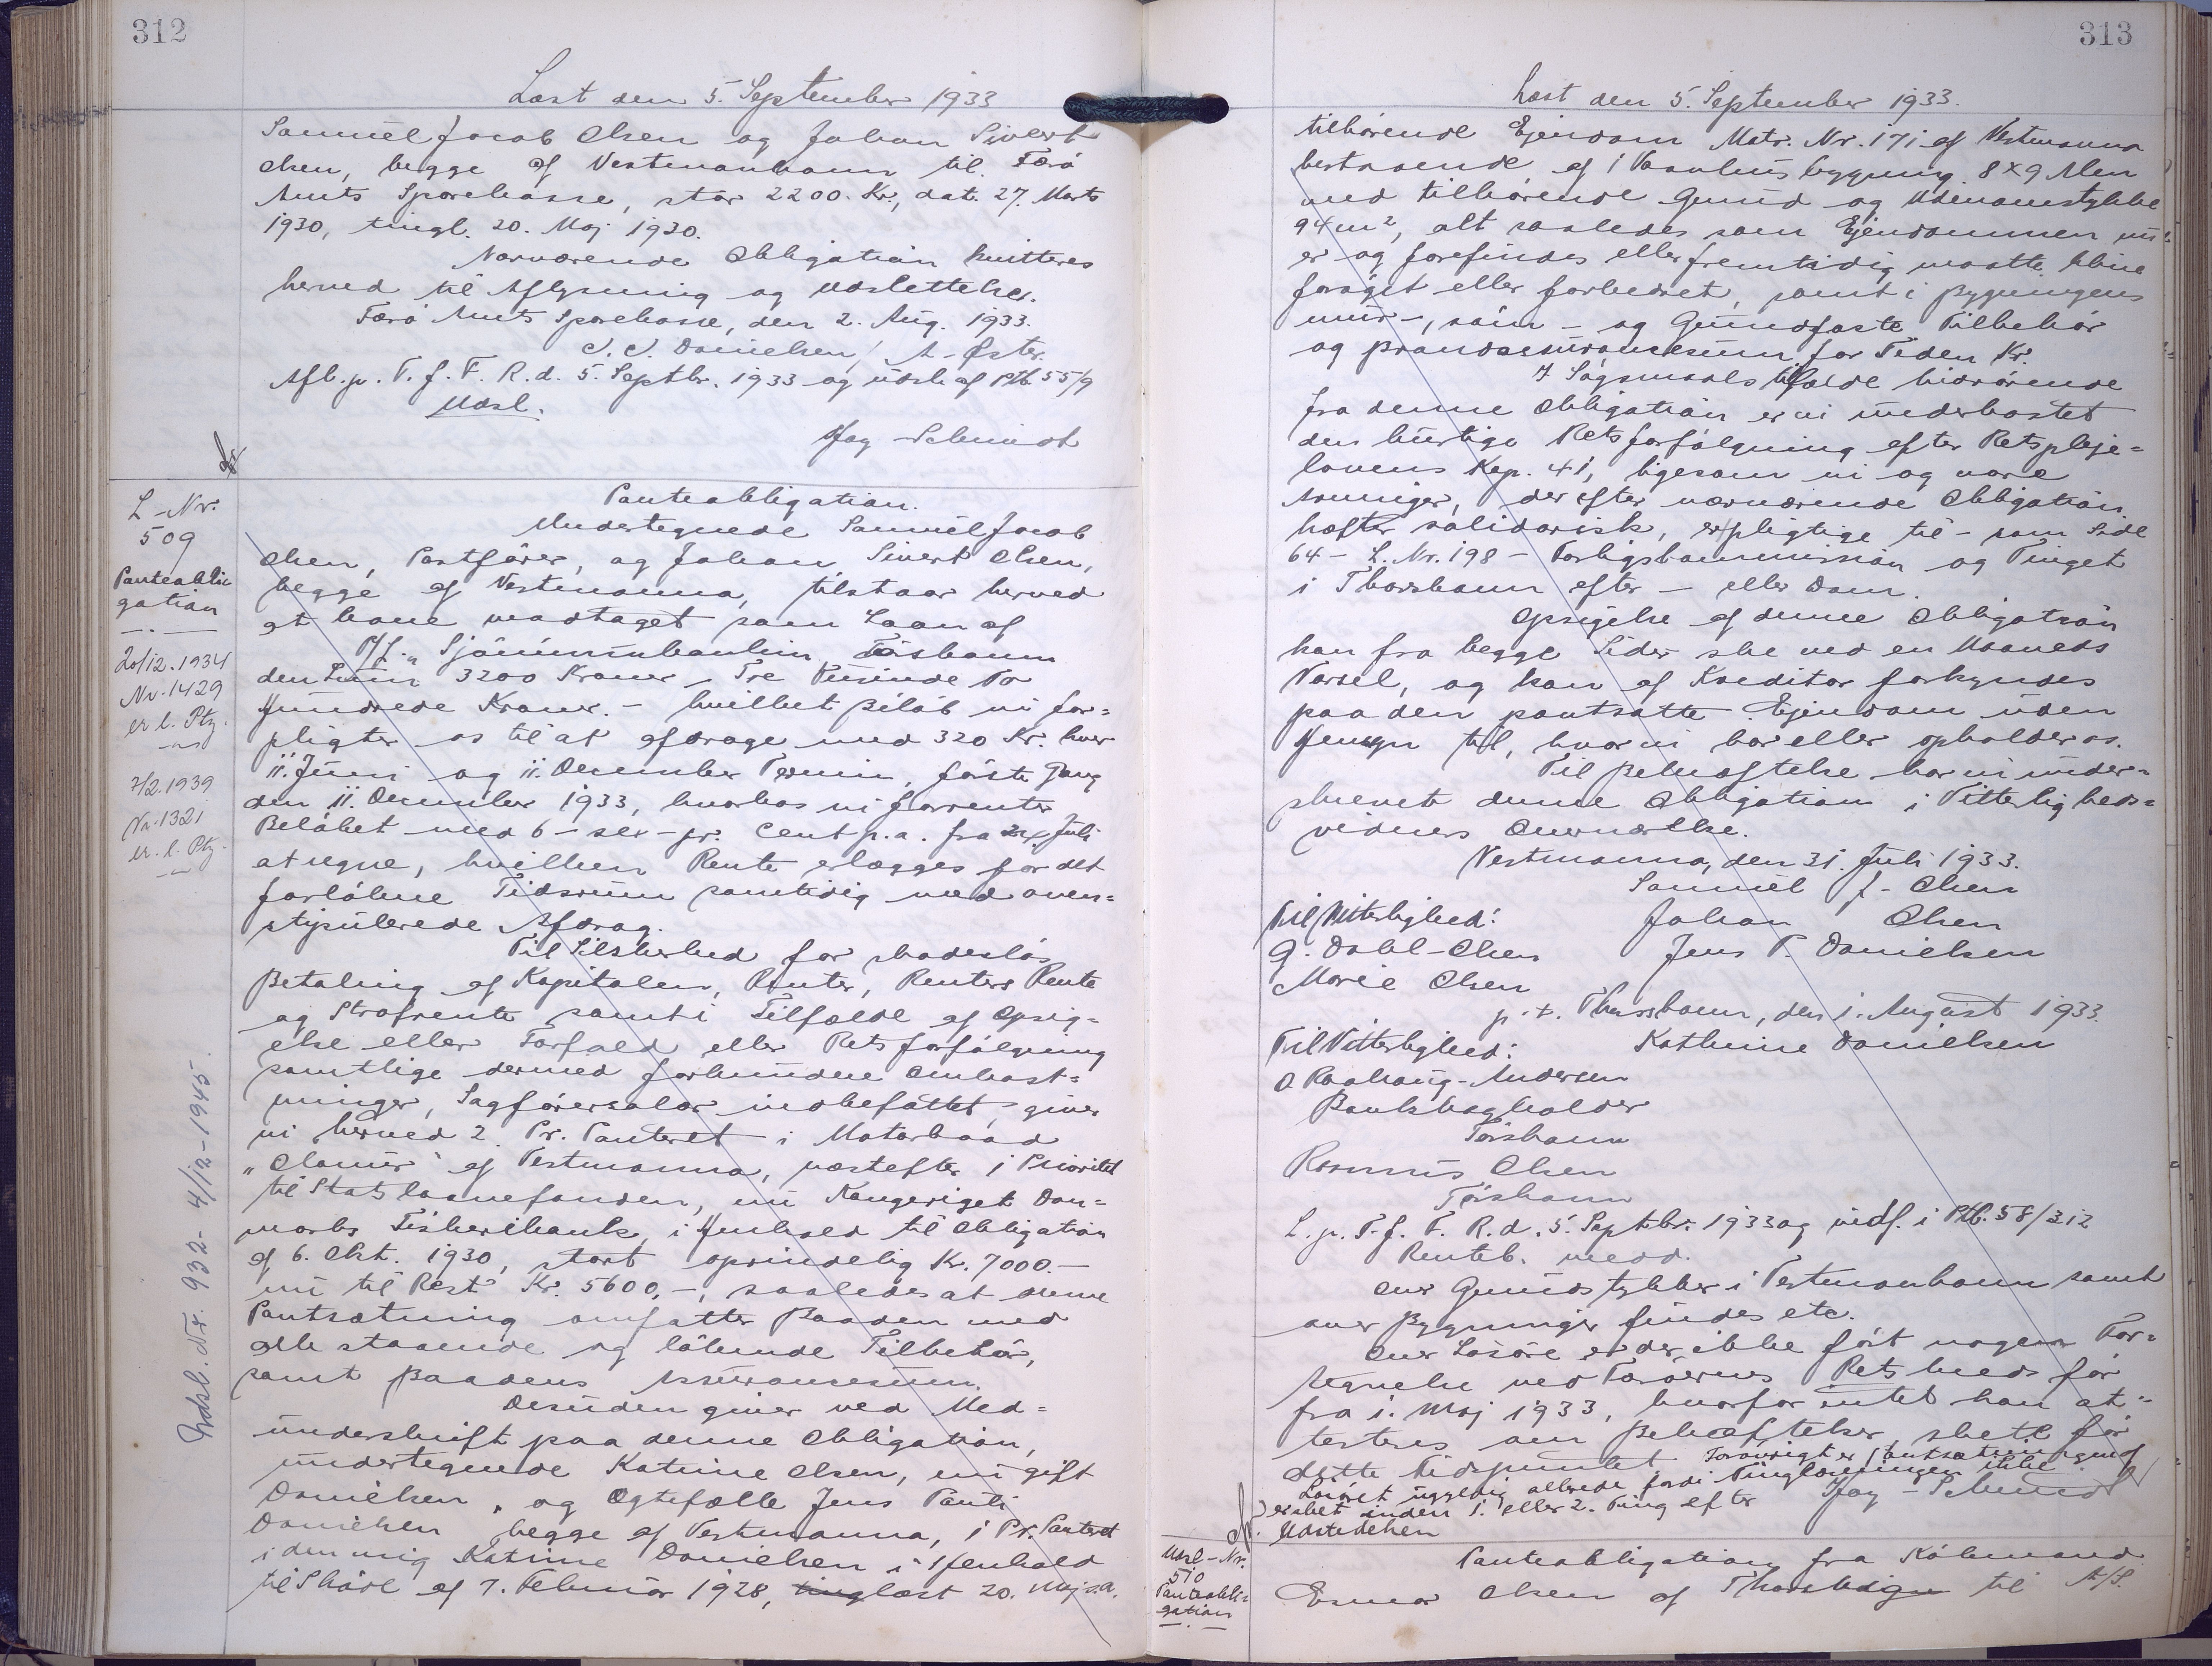 312
Læst den 5. September 1933
Samuel Jacob Olsen og Johan Sivert
Olsen, begge af Vestmanhavn til Færø
Amts Sparekasse, stor 2200 Kr., dat. 27. Marts
1930, tingl. 20. Maj 1930.
Nærværende Obligation kvitteres
herved til Aflysning og Udslettelse.
Færø Amts Sparekasse, den 2. Aug. 1933.
J. J. Danielsen / A. Øster.
Afl. p. T. f. F. R. d. 5. Septbr. 1933 og udsl. af Ptb. 55/9
Udsl.
Hag - Schmidt
L-Nr.
509
Panteobli
gation
20/12.1934
Nr. 1429
er l. Ptg.
7/2.1939
Nr. 1321
er. l. Ptg.
Udsl. Nr. 932 - 4/12-1945.
Panteobligation.
Undertegnede Samuel Jacob
Olsen, Postfører, og Johan Sivert Olsen,
begge af Vestmanna, tilstaar herved
at have modtaget som Laan af
P/f. " Sjóvinnubankin Tórshavn
den Sum 3200 Kroner, Tre Tusinde To
Hundrede Kroner. - hvilket Beløb vi for=
pligter os til at afdrage med 320 Kr. hver
11. Juni og 11. December Termin, første Gang
den 11. December 1933, hvorhos vi forrenter
Beløbet med 6 - sex - pr. Cent p.a. fra Juli
at regne, hvilken Rente erlægges for det
forløbne Tidsrum samtidig med oven=
stipulerede Afdrag.
Til Sikkerhed for skadesløs
Betaling af Kapitalen, Renter, Renters Rente
og Strafrente samt i Tilfælde af Opsig=
else eller Forfald eller Retsforfølgning
samtlige dermed forbundne Omkost=
ninger, Sagførersalær indbefattet, giver
vi herved 2. Pr. Panteret i Motorbaad
af Vestmanna, næstefter 1 Prioritet
til Statslaanefonden, nu Kongeriget Dan=
marks Fiskeribank, i Henhold til Obligation
af 6. Okt. 1930, stort oprindelig Kr. 7000.-
nu til Rest Kr. 5600,-, saaledes at denne
Pantsætning omfatter Baaden med
alle staaende og løbende Tilbehør,
samt Baadens Assurancesum.
Desuden giver ved Med=
underskrift paa denne Obligation,
undertegnede Katrine Olsen, nu gift
Danielsen, og Ægtefælle Jens Pauli
Danielsen begge af Vestmanna, 1 Pr. Panteret
i den mig Katrine Danielsen i Henhold
til Skøde af 7. Februar 1928, tinglæst 20. Maj s.A.
313
Læst den 5. September 1933.
tilhørende Ejendom Matr. Nr. 17i af Vestmanna
bestaaende af 1 Vaanhus bygning 8x9 Alen
med tilhørende Grund og Udenomstykke
94 m², alt saaledes som Ejendommen nu
er og forefindes eller fremtidig maatte blive
forøget eller forbedret, samt i Bygningens
mur-, søm- og Grundfaste Tilbehør
og Brandassurancesum for Tiden Kr.
I Søgsmaalstilfælde hidrørende
fra denne Obligation er vi underkastet
den hurtige Retsforfølgning efter Retspleje=
lovens Kap. 41, ligesom vi og vore
Arvinger, der efter nærværende Obligation
hæfter solidarisk, er pligtige til - som Side
64 - L. Nr. 198 - Forligskommission og Tinget
i Thorshavn efter - eller Dom.
Opsigelse af denne Obligation
kan fra begge Sider ske ved en Maaneds
Varsel, og kan af Kreditor forkyndes
paa den pantsatte Ejendom uden
Hensyn til, hvor vi bor eller opholder os.
Til Bekræftelse har vi under=
skrevet denne Obligation i Vitterligheds=
vidners Overværelse.
Vestmanna, den 31. Juli 1933.
Samuel J. Olsen
Til Vitterlighed: Johan Olsen
G. Dahl-Olsen Jens P. Danielsen
Marie Olsen
p.t. Thorshavn, den 1. August 1933.
Til Vitterlighed: Kathrine Danielsen
Andersen
Bankbogholder
Tórshavn
Rasmus Olsen
Tórshavn
L. p. T. f. F. R. d. 5. Septbr. 1933 og indf. i Ptb. 58/312
Renteb. medd.
Over Grundstykker i Vestmanhavn samt
over Bygninger findes etc.
Over Løsøre er der ikke ført nogen For=
tegnelse ved Færøernes Ret heds før
fra 1. Maj 1933, hvorfor intet kan at=
testeres om Behæftelser, sket før
dette Tidspunkt Forøvrigt er Pantsætningen af
Løsøret ugyldig allerede fordi Tinglæsningen ikke
er sket inden 1. eller 2. Ting efter Hag - Schmidt
Udstedelsen
Udsl - Nr.
510
Panteobli=
gation
Panteobligation fra Købmand
Olsen af til A/S.